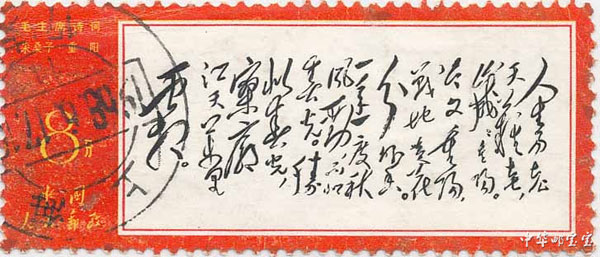 毛主席诗词
采桑子 重阳
8分
中国
人民邮政
人生易老
天难老,
岁岁重阳。
今又重阳,
战地黄花
分外香。
一年一度秋
风劲,不似
春光。胜
似春光,
寥廓
江天万里
霜。
中华邮宝宝